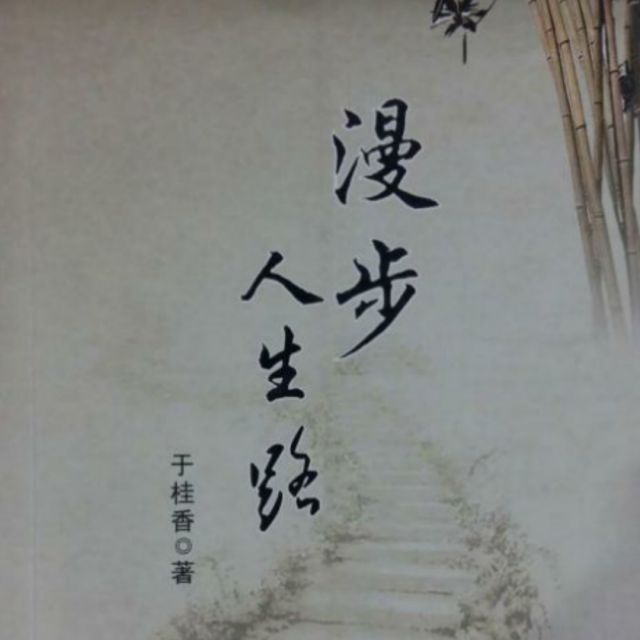 漫步
人生路
于桂香◎著